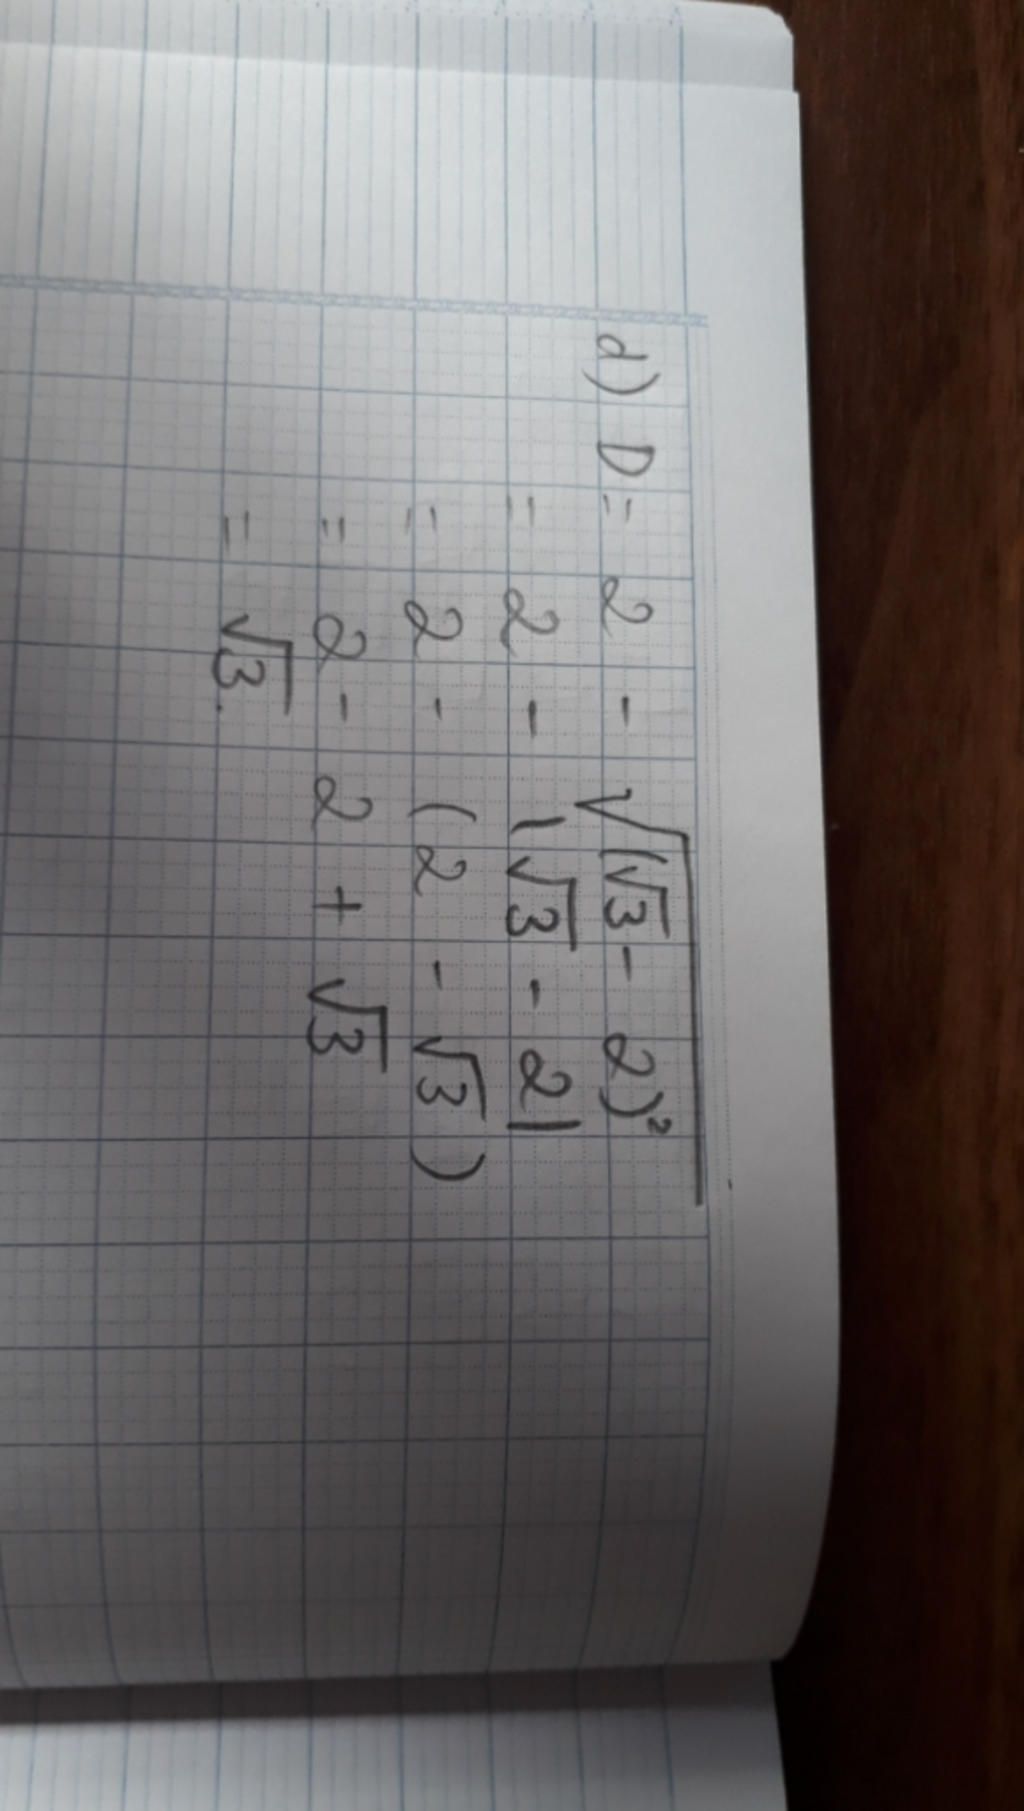 d) D = 2 - √(√3 - 2)²
= 2 - |√3 - 2|
= 2 - (2 - √3)
= 2 - 2 + √3
= √3.